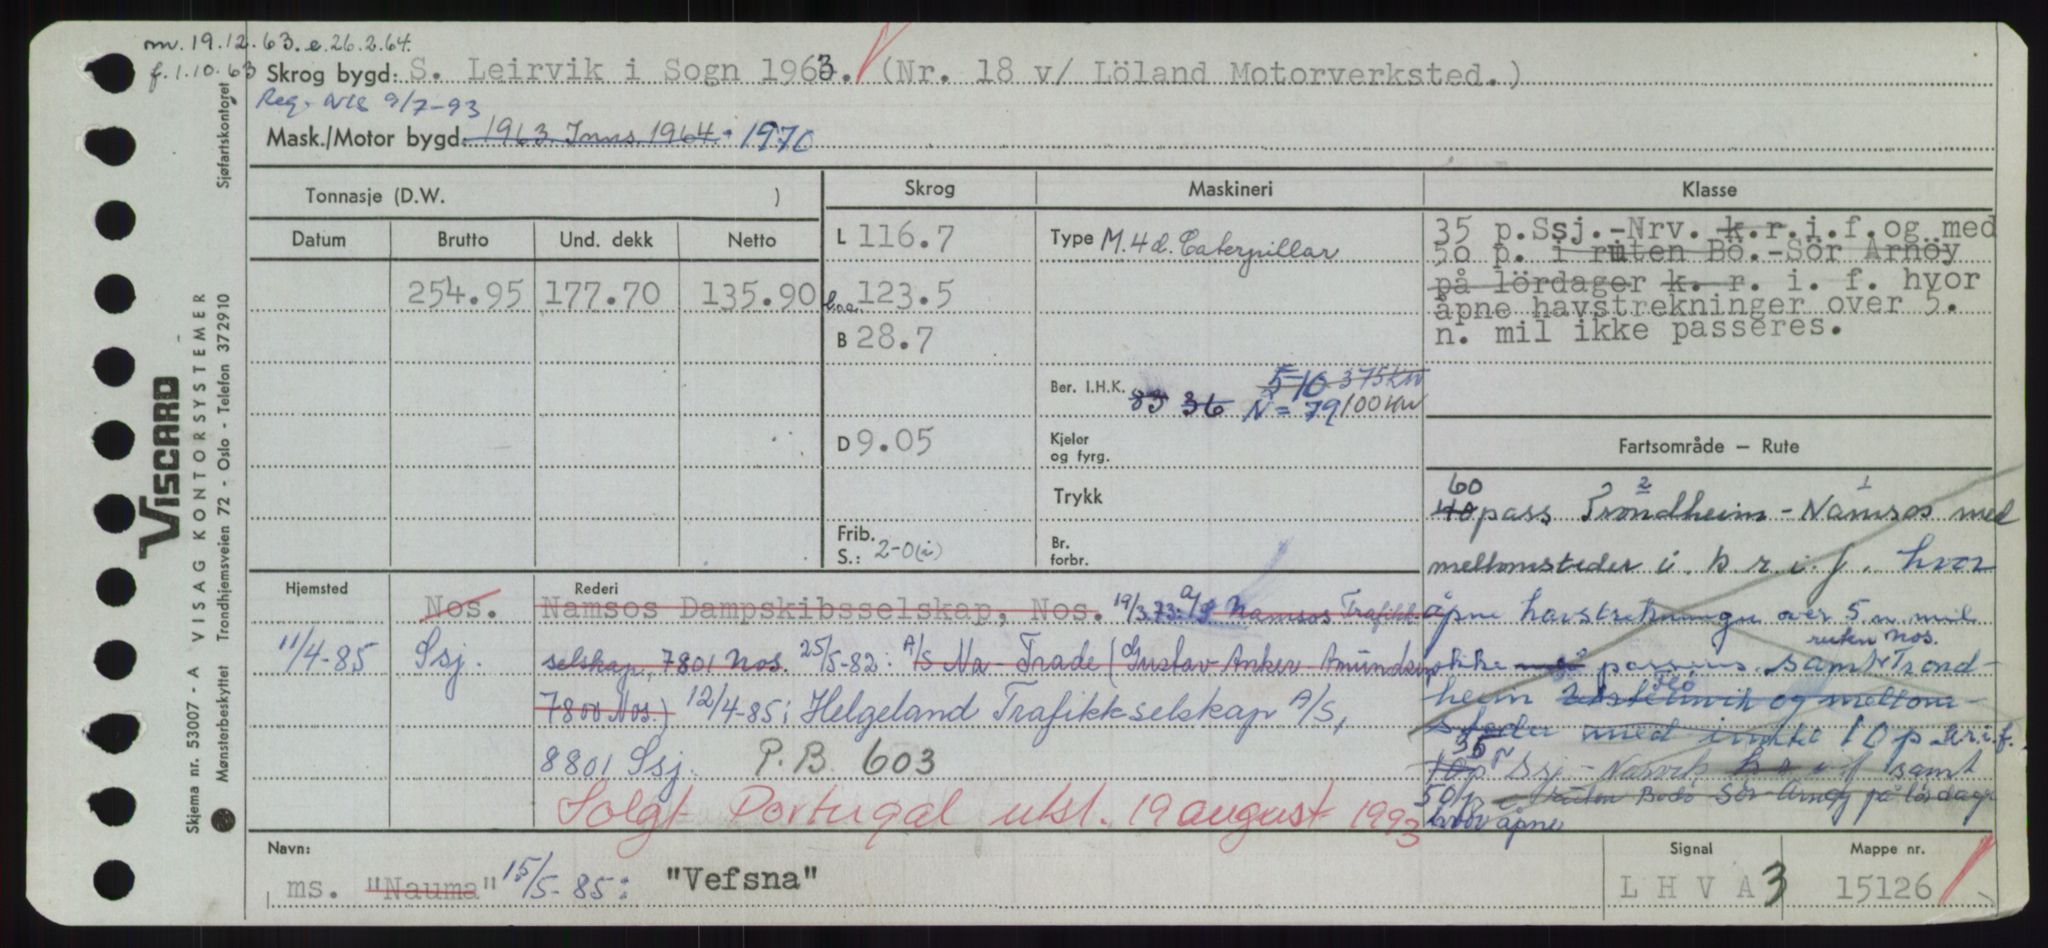 mv. 19.12.63. e. 26.2.64.
f. 1.10.63 Skrog bygd: S. Leirvik i Sogn 1963. (Nr. 18 v/ Löland Motorverksted.)
Reg. NIS 9/7-93
Mask./Motor bygd: 1963 Inns. 1964. 1970
Sjøfartskontoret
Tonnasje (D.W. )
Datum Brutto Und. dekk Netto
254.95 177.70 135.90
Skrog
L 116.7
l.o.a. 123.5
B 28.7
D 9.05
Frib.
S.: 2-0(i)
Maskineri
Type M. 4 d. Caterpillar
Ber. I.H.K. 83 36 510 375 kW
N = 79 100 kW
Kjeler
og fyrg.
Trykk
Br.
forbr.
Klasse
35 p.Ssj.-Nrv. k.r.i.f.og med
50 p. i ruten Bö.-Sör Arnöy
på lördager k. r. i. f. hvor
åpne havstrekninger over 5.
n. mil ikke passeres.
Fartsområde — Rute
60 2 1
40 pass Trondheim - Namsos med
mellomsteder i. k r. i. f. hvor
åpne havstrekninger over 5 n mil
ruten Nos.
ikke passeres. samt Trond-
heim og mellom-
steder med inntil 10 p. k.r.i.f.
35
10 p Ssj - Narvik k r i f samt
50 p i ruten Bodö Sör-Arnöy på lördager
hvor åpne
Hjemsted Rederi
Nos. Namsos Dampskibsselskap, Nos. 19/3.73: A/S Namsos Trafikk-
11/4-85 Ssj. selskap, 7801 Nos. 25/5-82: A/S Na-Trade (Gustav Anker Amundsen,
7800 Nos.) 12/4-85: Helgeland Trafikkselskap A/S,
8801 Ssj. P.B. 603
Solgt Portugal utsl. 19 august 1993
Navn:
ms. "Nauma" 15/5-85: "Vefsna"
Signal
L H V A 3
Mappe nr.
15126
VISCARD
VISAG KONTORSYSTEMER
Skjema nr. 53007 - A
Mønsterbeskyttet Trondhjemsveien 72 - Oslo - Telefon 372910